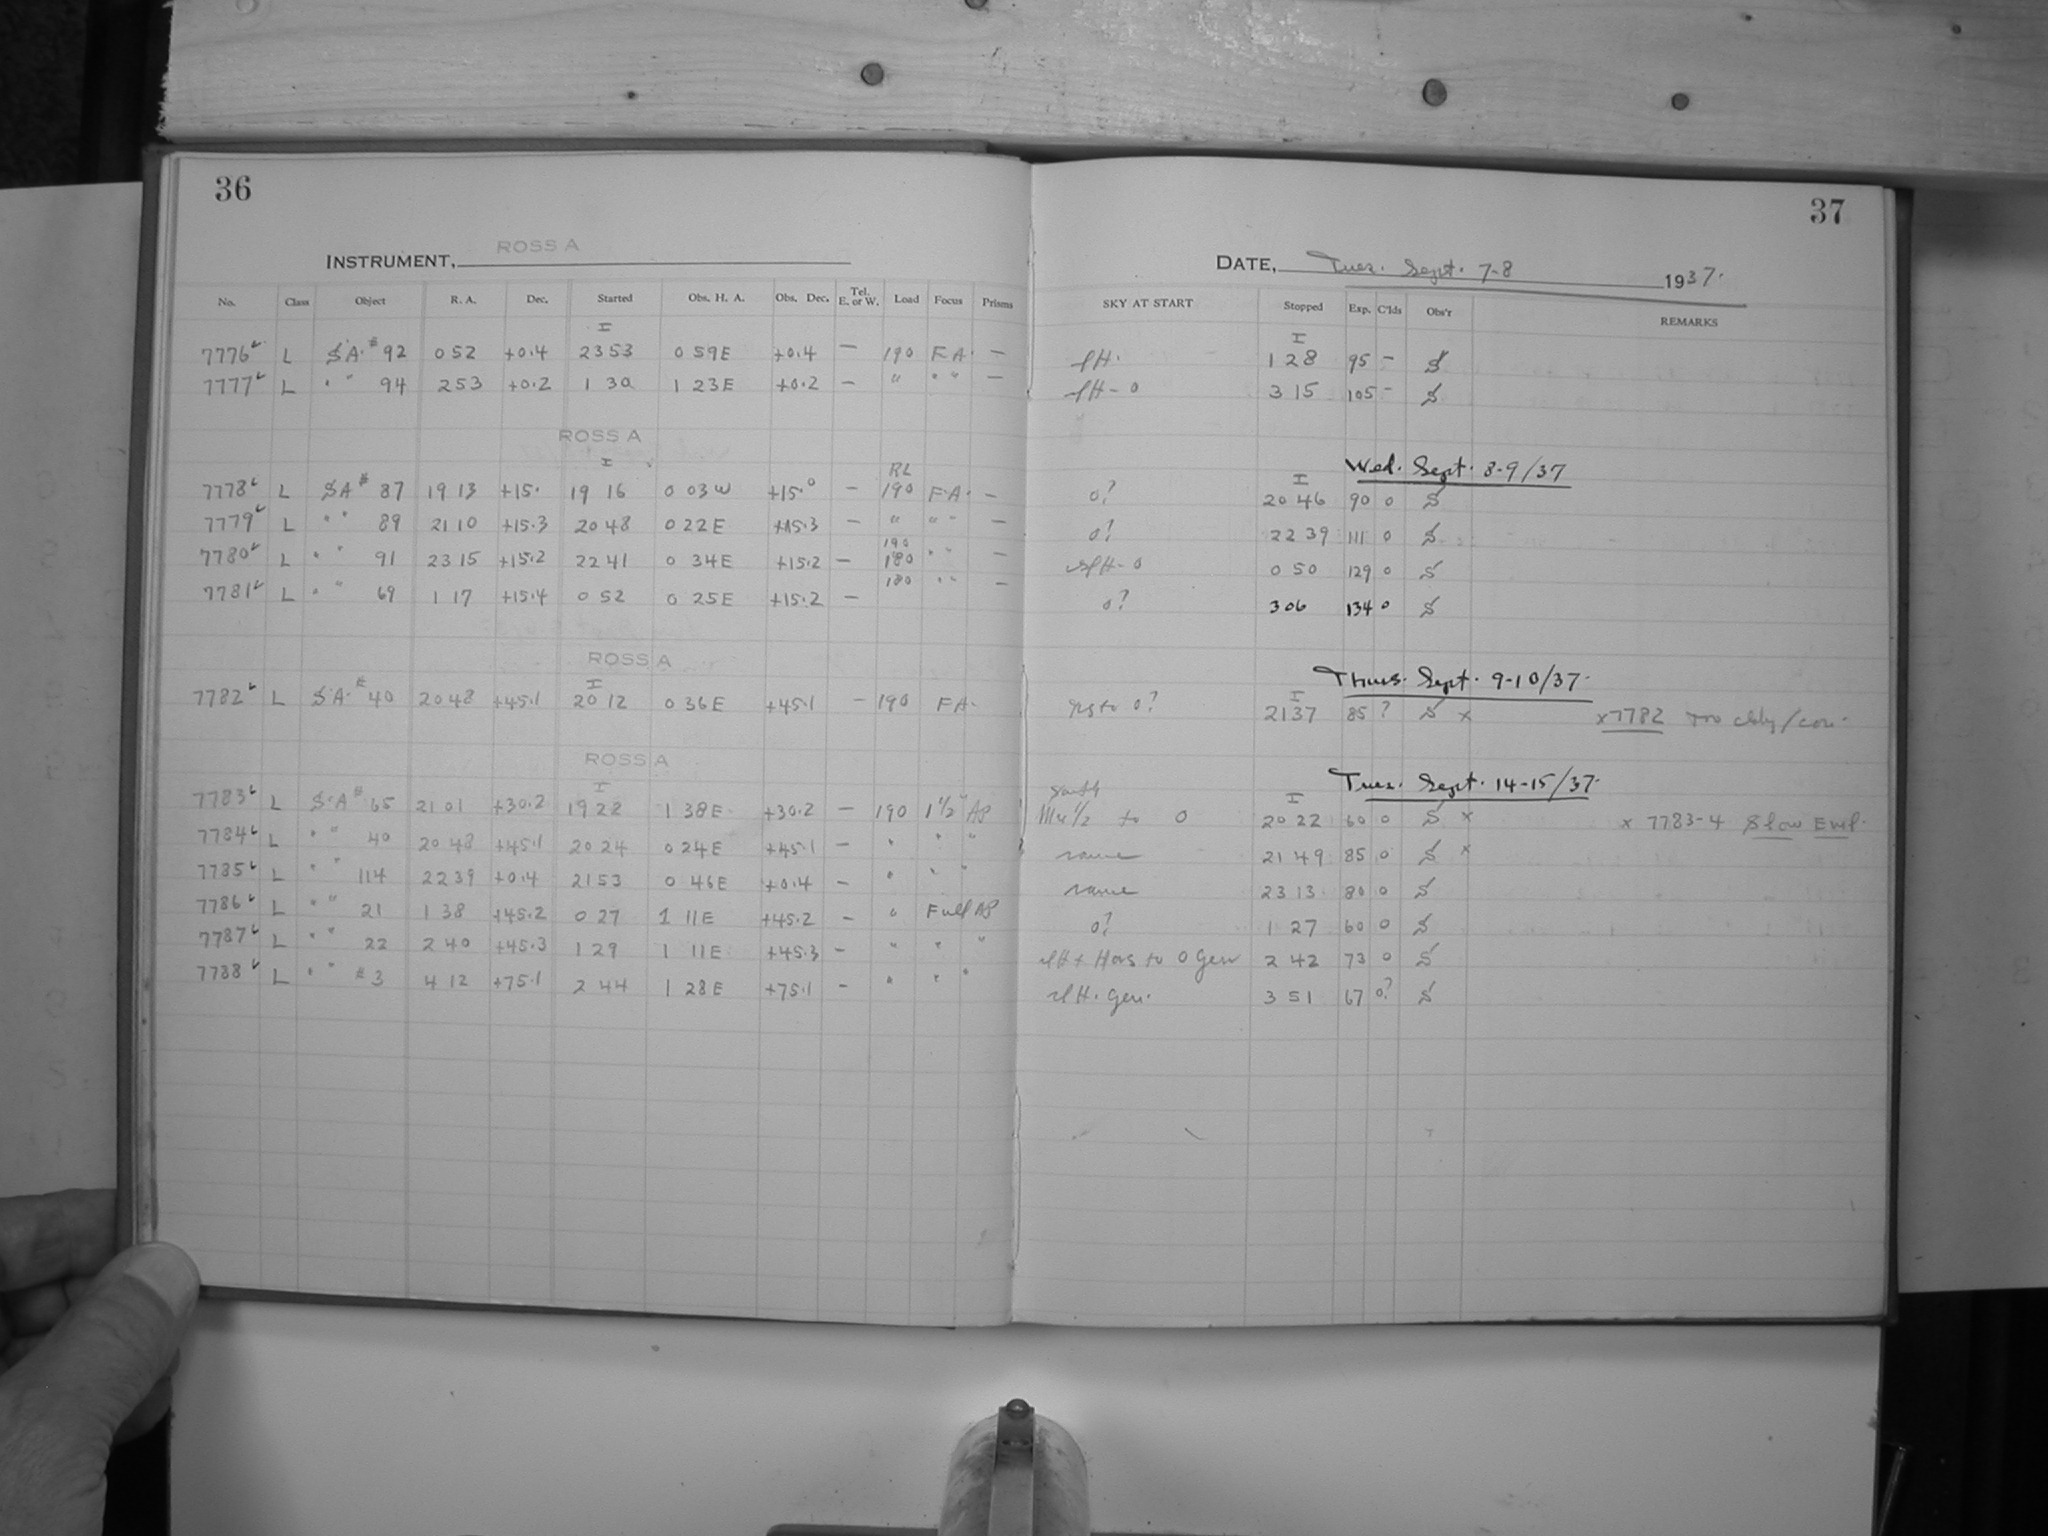 36
INSTRUMENT, ROSS A
No. Class Object R. A. Dec. Started Obs. H. A. Obs. Dec. Tel. E. or W. Load Focus Prisms
I
7776 L S.A. # 92 0 52 +0.4 23 53 0 59E +0.4 — 190 F.A. —
7777 L " " 94 2 53 +0.2 1 30 1 23E +0.2 — " " " —
ROSS A
I RL
7778 L SA # 87 19 13 +15. 19 16 0 03W +15.0 — 190 F.A. —
7779 L " " 89 21 10 +15.3 20 48 0 22E +15.3 — " " " —
7780 L " " 91 23 15 +15.2 22 41 0 34E +15.2 — 190 180 " " —
7781 L " " 69 1 17 +15.4 0 52 0 25E +15.2 — 180 " " —
ROSS A
I
7782 L S.A. # 40 20 48 +45.1 20 12 0 36E +45.1 — 190 FA.
ROSS A
I
7783 L S.A # 65 21 01 +30.2 19 22 1 38E +30.2 — 190 1½" AP
7784 L " " 40 20 48 +45.1 20 24 0 24E +45.1 — " " "
7785 L " " 114 22 39 +0.4 21 53 0 46E +0.4 — " " "
7786 L " " 21 1 38 +45.2 0 27 1 11E +45.2 — " Full AP
7787 L " " 22 2 40 +45.3 1 29 1 11E +45.3 — " " "
7788 L " " #3 4 12 +75.1 2 44 1 28E +75.1 — " " "
37
DATE, Tues. Sept. 7-8 1937.
SKY AT START Stopped Exp. C'lds Obs'r REMARKS
I
1 28 95 — S
3 15 105 — S
Wed. Sept. 8-9/37
I
0? 20 46 90 0 S
0? 22 39 111 0 S
0 50 129 0 S
0? 3 06 134 0 S
Thurs. Sept. 9-10/37.
I
to 0? 21 37 85 ? S x x 7782 Too cldy/
Tues. Sept. 14-15/37.
South I
to 0 20 22 60 0 S x x 7783-4 Slow Eml.
same 21 49 85 0 S x
same 23 13 80 0 S
0? 1 27 60 0 S
to 0 Gen 2 42 73 0 S
Gen. 3 51 67 0? S